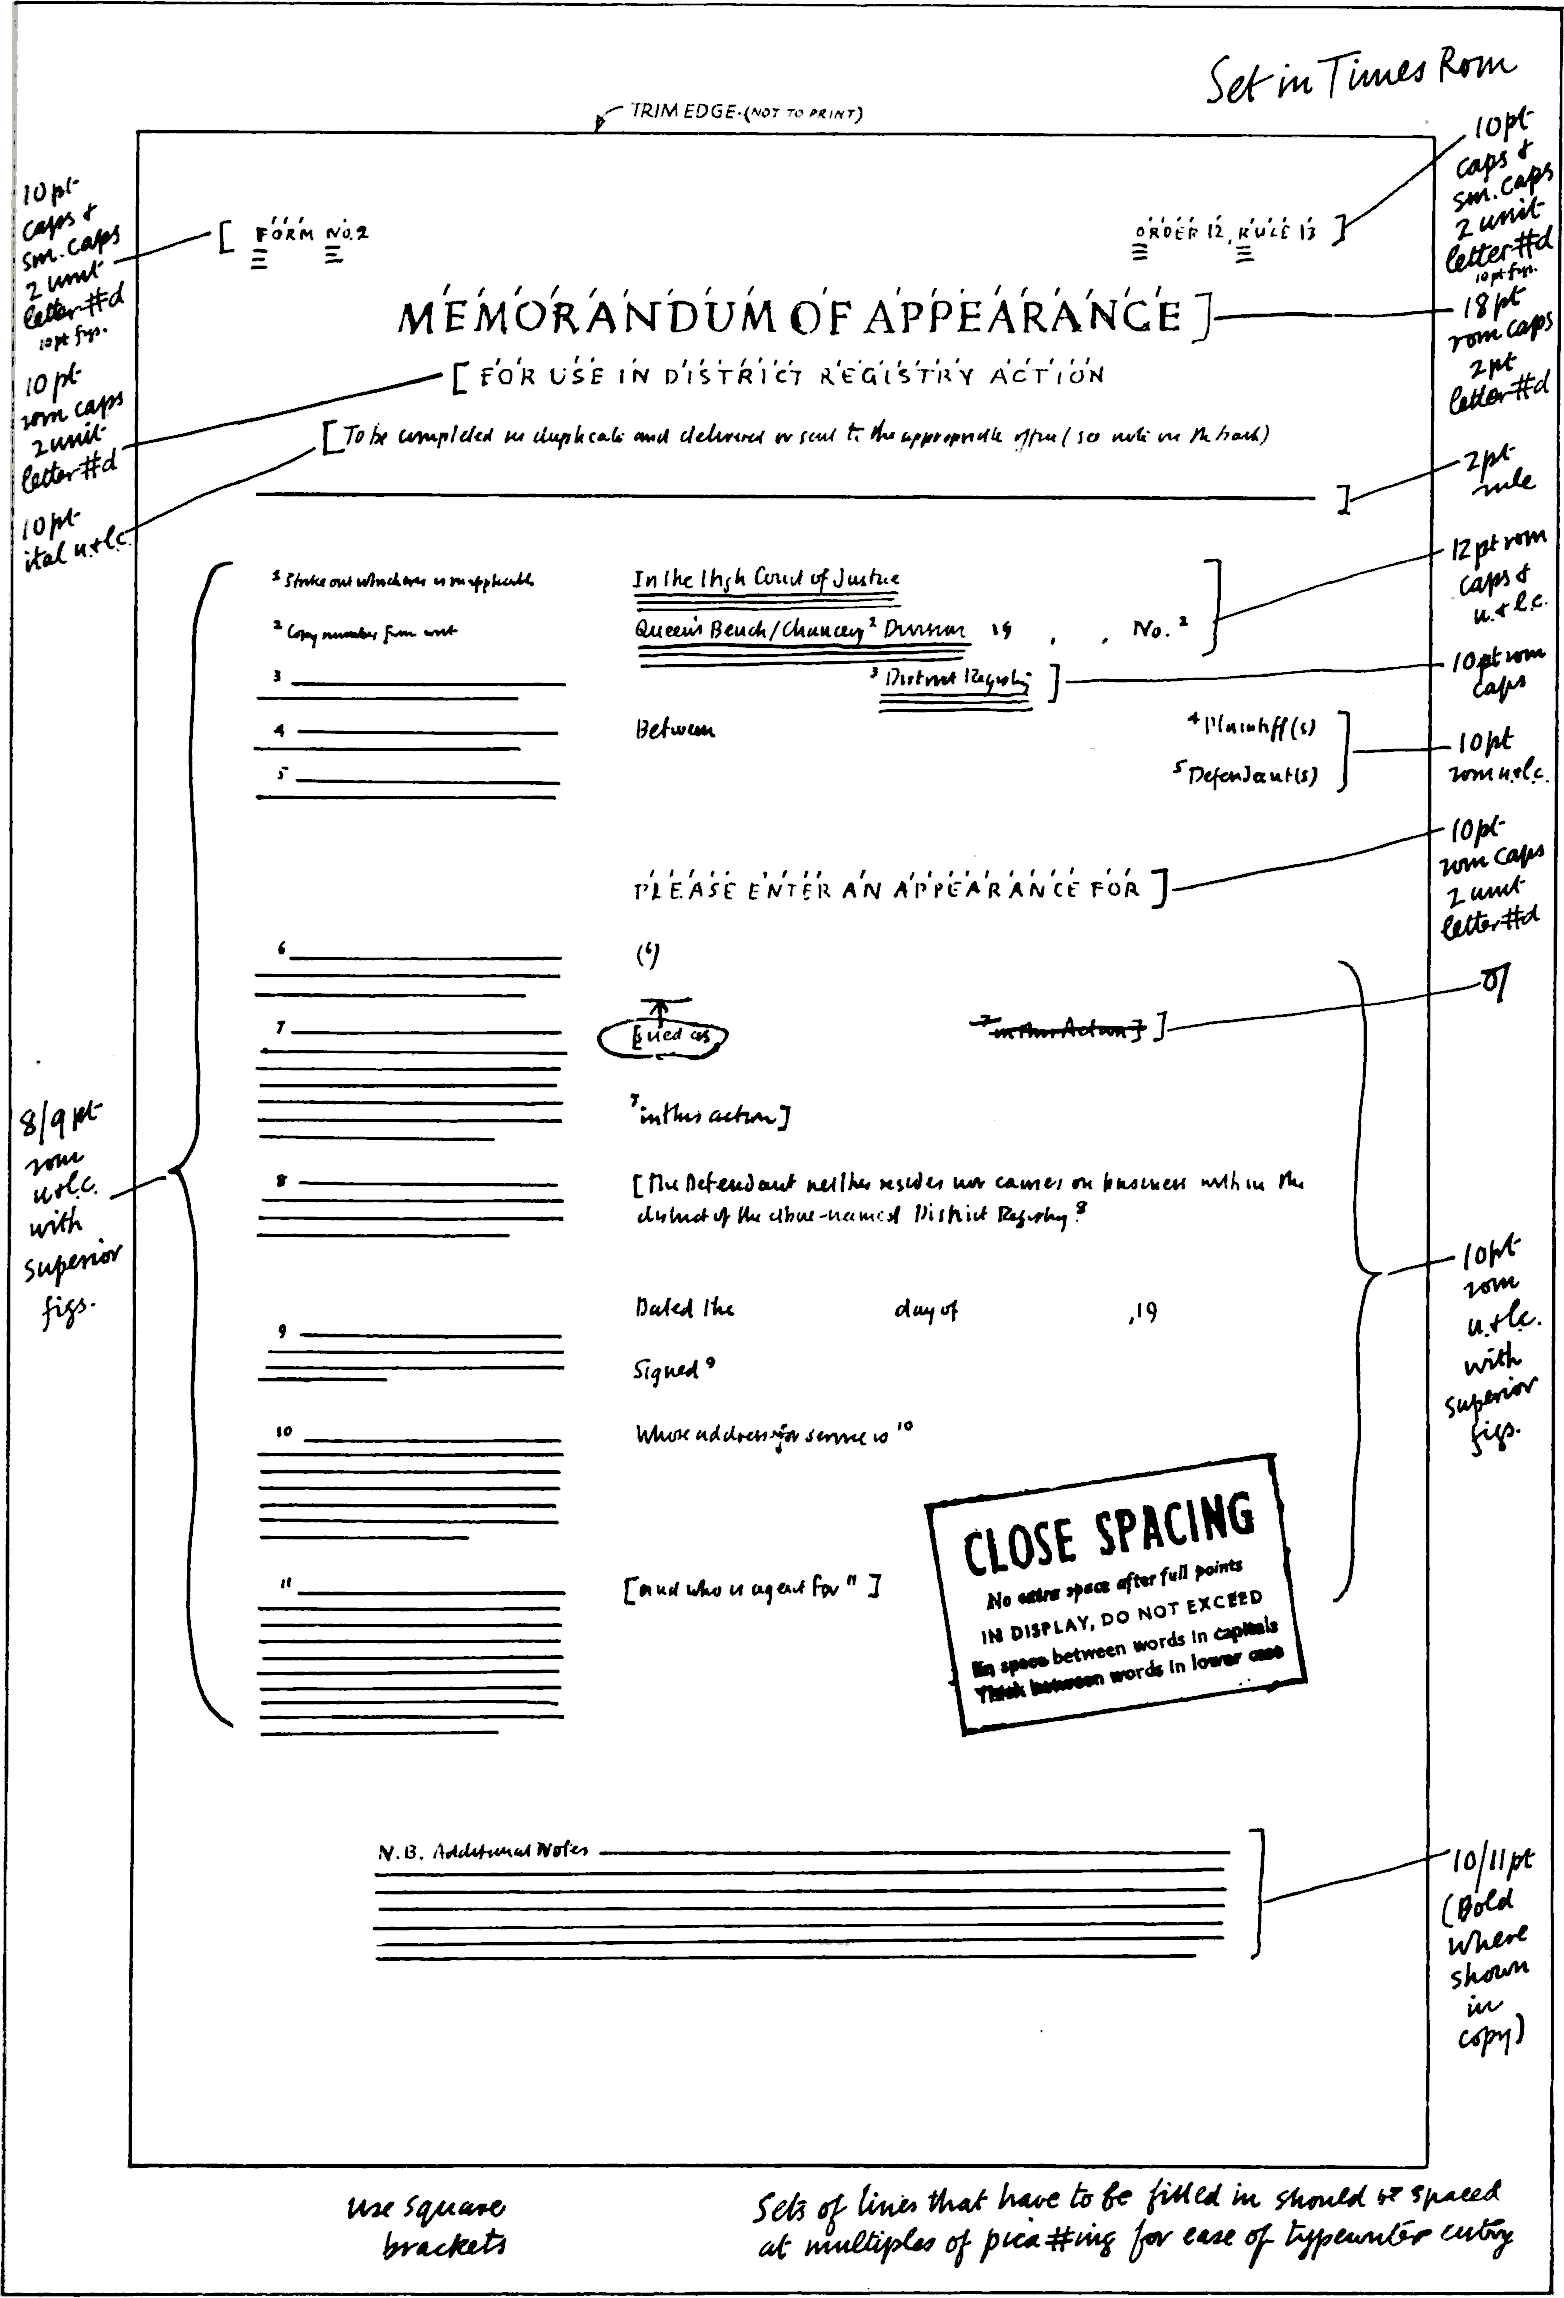 Set in Times Rom
TRIM EDGE. (NOT TO PRINT)
10pt
caps &
sm. caps
2 unit
letter #d
10pt figs.
10pt
caps &
sm. caps
2 unit
letter #d
10pt figs.
FORM NO. 2
ORDER 12, RULE 13
MEMORANDUM OF APPEARANCE
18pt
rom caps
2pt
letter #d
10pt
rom caps
2 unit
letter #d
FOR USE IN DISTRICT REGISTRY ACTION
[To be completed in duplicate and delivered or sent to the appropriate office (see note on the back)
2pt
rule
10pt
ital u.&l.c.
1 Strike out whichever is inapplicable
In the High Court of Justice
12pt rom
caps &
u.&l.c.
2 Copy number from writ
Queen's Bench/Chancery 2 Division 19 , , No. 2
3
3 District Registry
10pt rom
caps
4
Between
4 Plaintiff(s)
10pt
rom u.&l.c.
5
5 Defendant(s)
PLEASE ENTER AN APPEARANCE FOR
10pt
rom caps
2 unit
letter #d
6
(6)
7
[sued as
7 in this Action]
7 in this action]
8/9pt
rom
u.&l.c.
with
superior
figs.
8
[The Defendant neither resides nor carries on business within the
district of the above-named District Registry 8
10pt
rom
u.&l.c.
with
superior
figs.
Dated the day of ,19
9
Signed 9
10
Whose address for service is 10
CLOSE SPACING
No extra space after full points
IN DISPLAY, DO NOT EXCEED
En space between words in capitals
Thick between words in lower case
11
[and who is agent for 11 ]
N.B. Additional Notes
10/11pt
(Bold
where
shown
in
copy)
use square
brackets
Sets of lines that have to be filled in should be spaced
at multiples of pica #ing for ease of typewriter entry